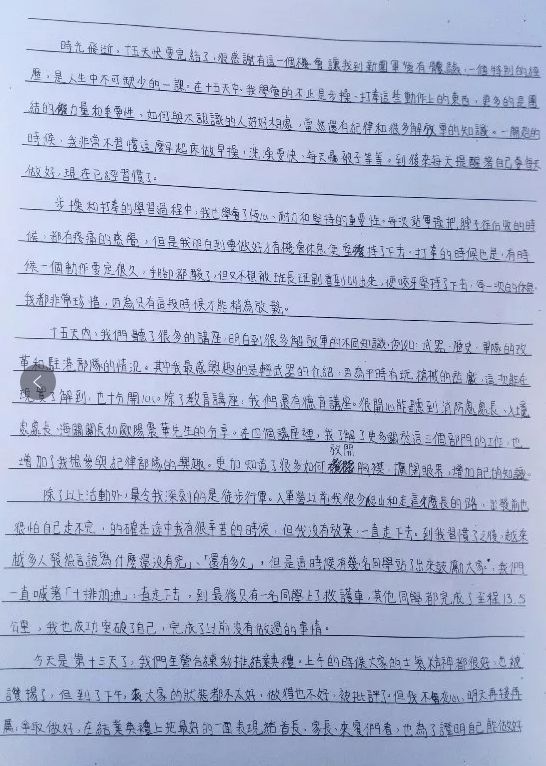 時光飛逝，十五天快要完結了，很感謝有這一個機會讓我到新圍軍營有體驗，一個特別的經
歷，是人生中不可缺少的一課。在十五天中，我學會的不止是步操、打拳這些動作上的東西，更多的是團
結的力量和重要性，如何與不認識的人好好相處，當然還有紀律和很多解放軍的知識。一開始的
時候，我非常不習慣這麼早起床做早操，洗澡要快、每天疊被子等等。到後來每天提醒著自己要每天
做好，現在已經習慣了。
步操和打拳的學習過程中，我也學會了恆心、耐力和堅持的重要性。每次站軍姿把脖子往后收的時
候，都有疼痛的感覺，但是我明白到要做好才有機會休息，便堅持了下去。打拳的時候也是，有時
候一個動作要定很久，手腳都酸了，但又不想被班長班副看到叫出來，便咬牙堅持了下去，每一次的休息
我都非常珍惜，因為只有這段時候才能稍為放鬆。
十五天內，我們聽了很多的講座，明白到很多解放軍的不同知識，例如：武器、歷史、軍隊的改
革和駐港部隊的情況。其中我最感興趣的是輕武器的介紹，因為平時有玩槍械的遊戲，這次能在
現實了解到，也十分開心。除了教育講座，我們還有德育講座。很開心能聽到消防處處長、入境
處處長、海關關長和歐陽先生的分享。在四個講座裡，我了解了更多關於這三個部門的工作，也
增加了我想參與紀律部隊的興趣。更加知道了很多如何放開胸襟，廣闊眼界，增加自己的知識。
除了以上活動外，最令我深刻的是徒步行軍。入軍營以前我很少爬山和走這麼長的路，出發前也
很怕自己走不完，的確在途中我有很辛苦的時候，但我沒有放棄，一直走下去。到我習慣了之後，越來
越多人發怨言說「為什麼還沒有完」、「還有多久」，但是這時候有幾名同學站了出來鼓勵大家，我們
一直喊著「十排加油」，一直走下去，到最後只有一名同學上了救護車，其他同學都完成了全程13.5
公里，我也成功突破了自己，完成了以前沒有做過的事情。
今天是第十三天了，我們全營合練彩排結業典禮。上午的時候大家的士氣精神都很好，也被
讚揚了，但到了下午，大家的狀態都不太好，做得也不好，被批評了。但我不灰心，明天再接再
厲，爭取做好，在結業典禮上把最好的一面表現給首長、家長、來賓們看，也為了證明自己能做好